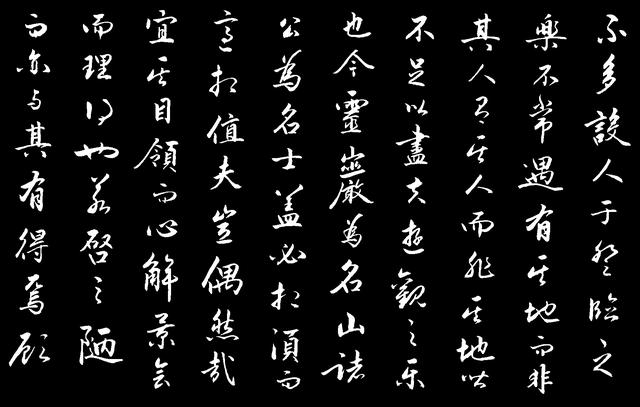 不多設人于登臨之
樂不常遇有其地而非
其人有其人而非其地皆
不足以盡夫遊觀之樂
也今靈巖為名山諸
公為名士蓋必相須而
適相值夫豈偶然哉
宜其目領而心解景會
而理得也若啓之陋
而亦與其有得焉顧